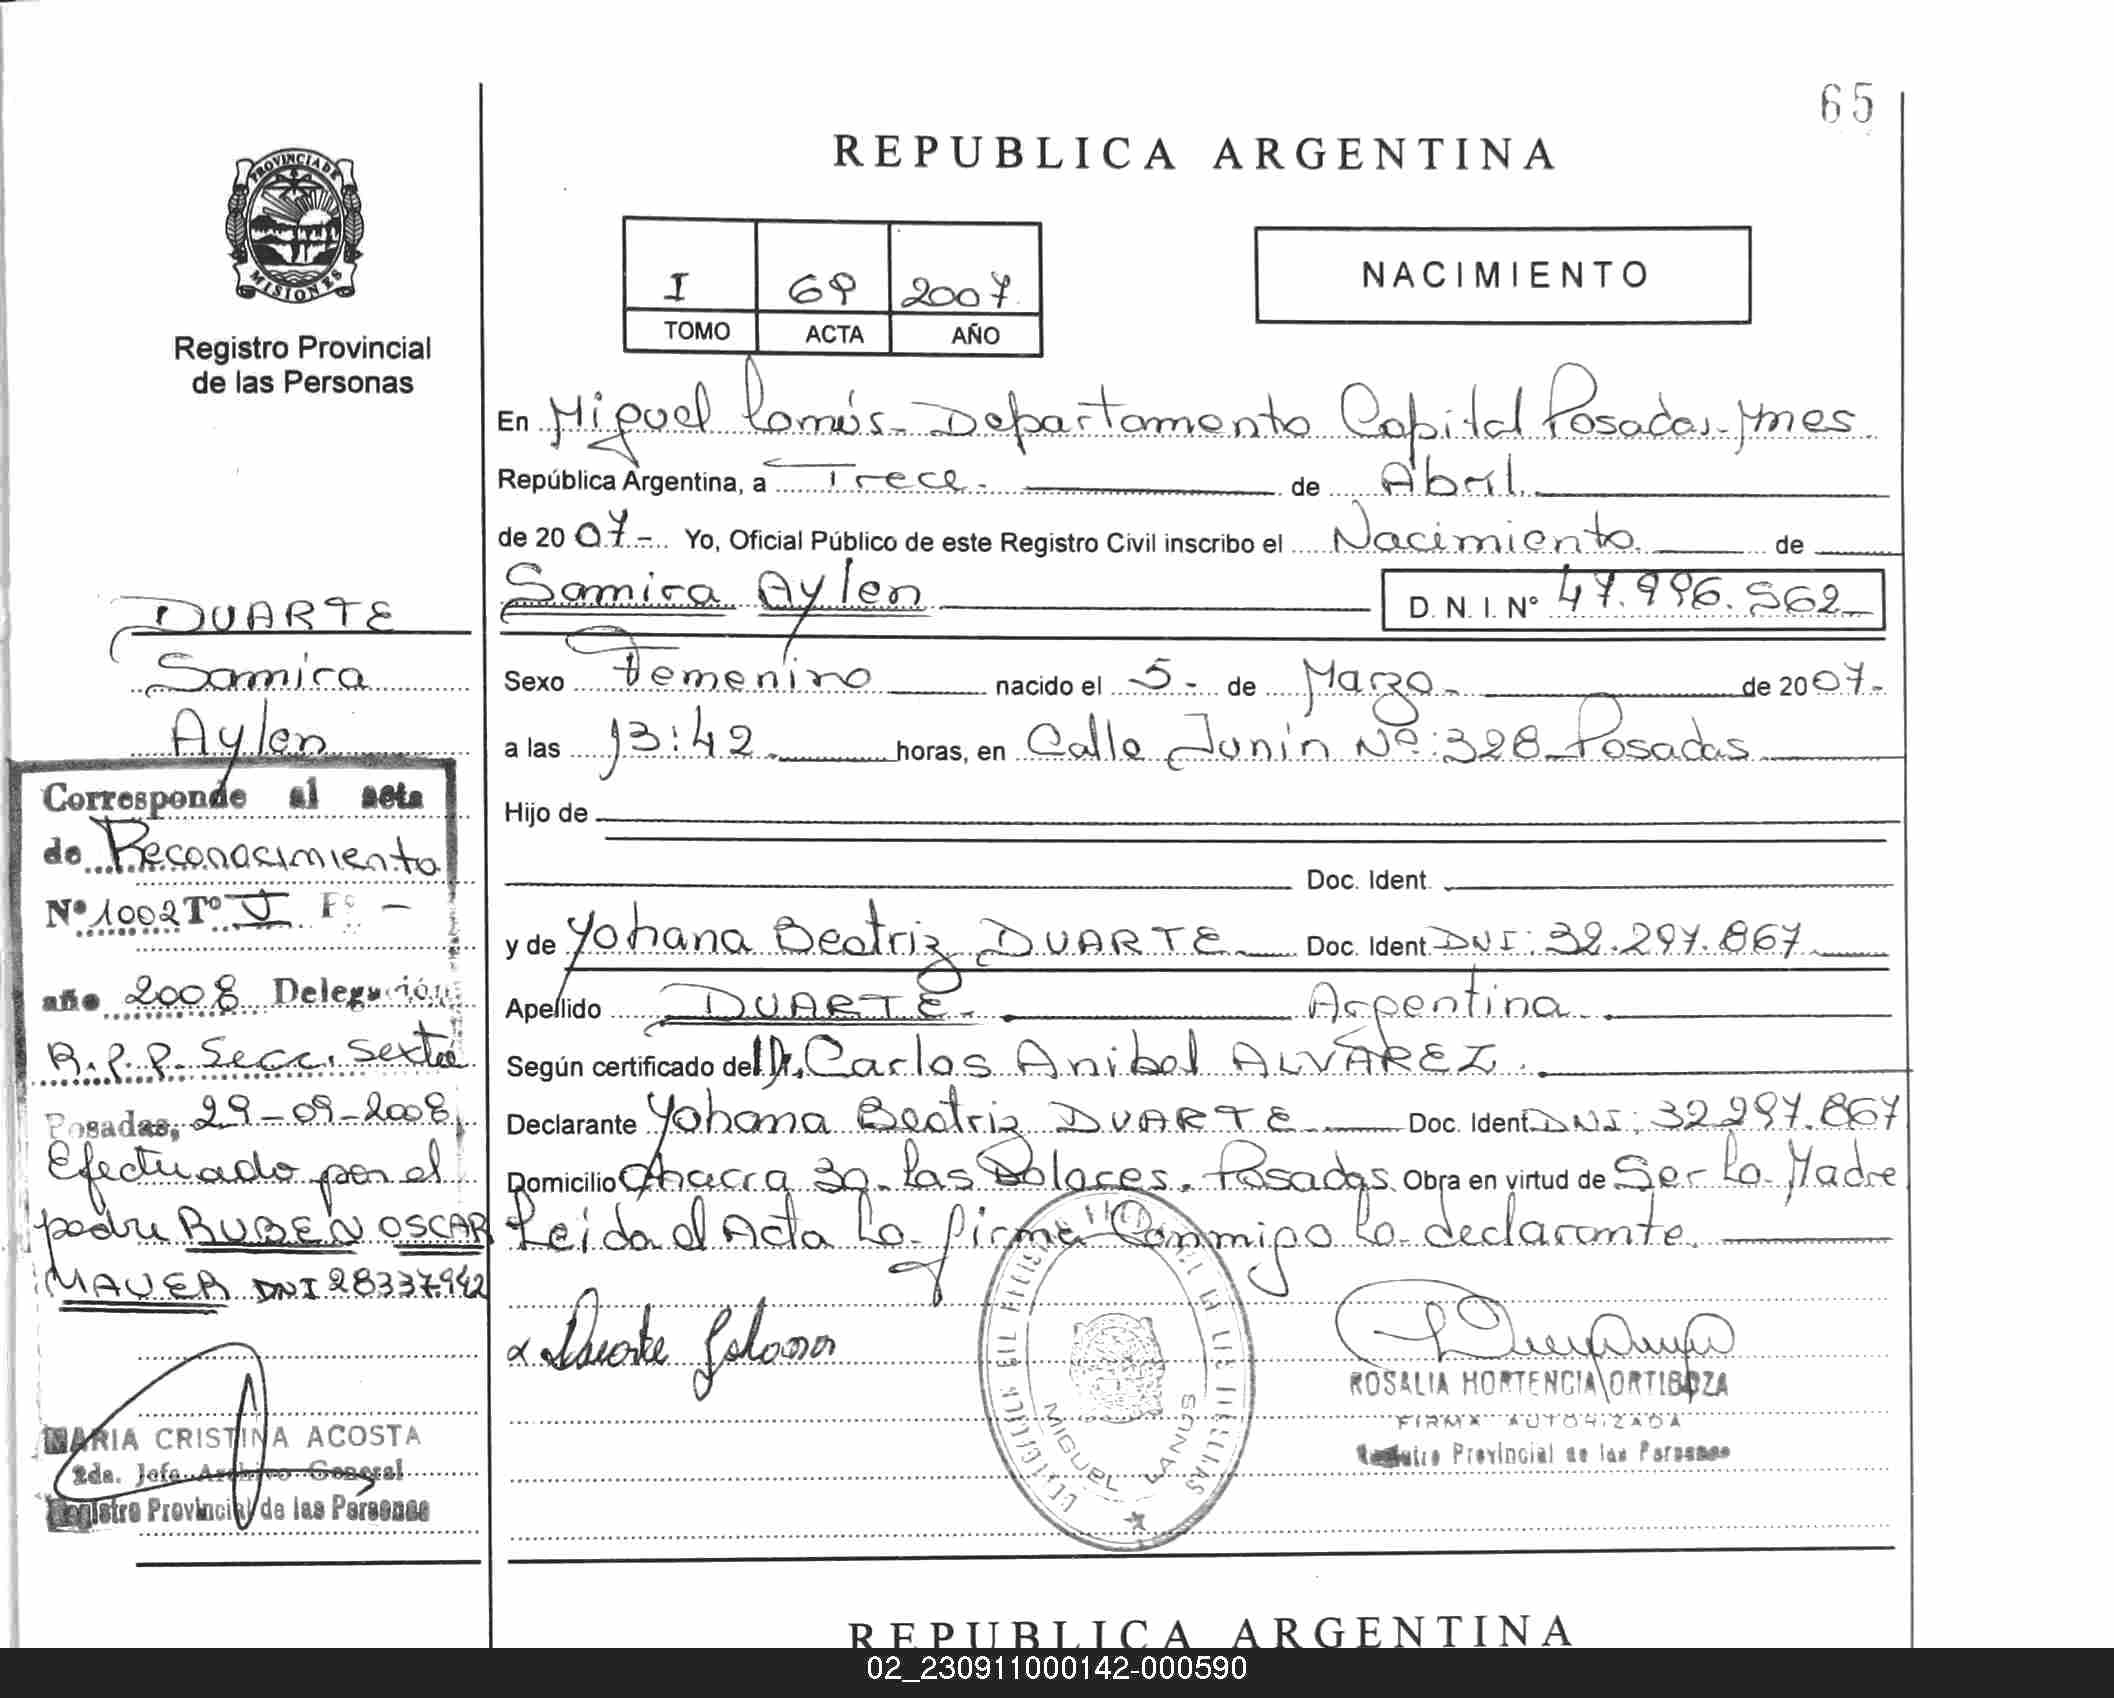 65
REPUBLICA ARGENTINA
PROVINCIA DE
MISIONES
Registro Provincial
de las Personas
I 69 2007
TOMO ACTA AÑO
NACIMIENTO
En Miguel Lanús - Departamento Capital Posadas - Mnes
República Argentina, a Trece - de Abril
de 2007 - Yo, Oficial Público de este Registro Civil inscribo el Nacimiento de
Samira Aylen D. N. I. Nº 47.996.562
Sexo Femenino nacido el 5 - de Marzo - de 2007 -
a las 13:42 horas, en Calle Junín Nº: 328 - Posadas
Hijo de
Doc. Ident.
y de Yohana Beatriz DUARTE Doc. Ident DNI: 32.297.867
Apellido DUARTE - Argentina
Según certificado del Dr. Carlos Anibal ALVAREZ.
Declarante Yohana Beatriz DUARTE Doc. Ident DNI: 32297.867
Domicilio Chacra 39 - las Dolores. Posadas Obra en virtud de Ser La Madre
Leida el Acta La firma Conmigo La declarante.
x Duarte Yohana
MIGUEL LANUS
ROSALIA HORTENCIA ORTIGOZA
FIRMA AUTORIZADA
Registro Provincial de las Personas
DUARTE
Samira
Aylen
Corresponde al acta
de Reconocimiento
Nº 1002 Tº V Fº -
año 2008 Delegación
R.P.P. Secc. Sexta
Posadas, 29-09-2008
Efectuado por el
padre RUBEN OSCAR
MAUER DNI 28337942
MARIA CRISTINA ACOSTA
2da. Jefe Archivo General
Registro Provincial de las Personas
REPUBLICA ARGENTINA
02_230911000142-000590